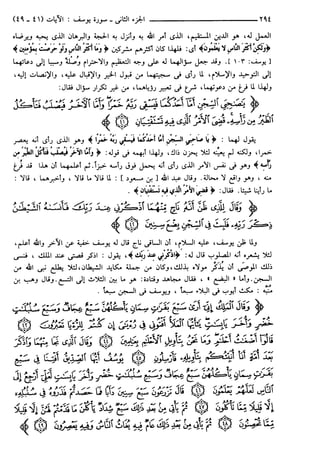 ٢٩٤ الجزء الثانى - سورة يوسف : الآيات (٤١ - ٤٩)
العمل له، هو الدين المستقيم، الذى أمر الله به وأنزل به الحجة والبرهان الذى يحبه ويرضاه
﴿وَلَٰكِنَّ أَكْثَرَ النَّاسِ لَا يَعْلَمُونَ﴾ أى: فلهذا كان أكثرهم مشركين ﴿وَمَا أَكْثَرُ النَّاسِ وَلَوْ حَرَصْتَ بِمُؤْمِنِينَ﴾
[يوسف: ١٠٣]. وقد جعل سؤالهما له على وجه التعظيم والاحترام وصلة وسببا إلى دعائهما
إلى التوحيد والإسلام، لما رأى فى سجيتهما من قبول الخير والإقبال عليه، والإنصات إليه،
ولهذا لما فرغ من دعوتهما، شرع فى تعبير رؤياهما، من غير تكرار سؤال فقال:
﴿يَا صَاحِبَيِ السِّجْنِ أَمَّا أَحَدُكُمَا فَيَسْقِي رَبَّهُ خَمْرًا وَأَمَّا الْآخَرُ فَيُصْلَبُ فَتَأْكُلُ
الطَّيْرُ مِنْ رَأْسِهِ قُضِيَ الْأَمْرُ الَّذِي فِيهِ تَسْتَفْتِيَانِ ٤١﴾
يقول لهما : ﴿يَا صَاحِبَيِ السِّجْنِ أَمَّا أَحَدُكُمَا فَيَسْقِي رَبَّهُ خَمْرًا﴾ وهو الذى رأى أنه يعصر
خمرا، ولكنه لم يعينه لئلا يحزن ذاك، ولهذا أبهمه فى قوله: ﴿وَأَمَّا الْآخَرُ فَيُصْلَبُ فَتَأْكُلُ الطَّيْرُ مِنْ
رَأْسِهِ﴾ وهو فى نفس الأمر الذى رأى أنه يحمل فوق رأسه خبزا. ثم أعلمهما أن هذا قد فُرغ
منه ، وهو واقع لا محالة. وقال عبد الله [ بن مسعود ] : لما قالا ما قالا ، وأخبرهما ، قالا :
ما رأينا شيئا. فقال: ﴿قُضِيَ الْأَمْرُ الَّذِي فِيهِ تَسْتَفْتِيَانِ﴾ .
﴿وَقَالَ لِلَّذِي ظَنَّ أَنَّهُ نَاجٍ مِنْهُمَا اذْكُرْنِي عِنْدَ رَبِّكَ فَأَنْسَاهُ الشَّيْطَانُ
ذِكْرَ رَبِّهِ فَلَبِثَ فِي السِّجْنِ بِضْعَ سِنِينَ ٤٢﴾
ولما ظن يوسف، عليه السلام، أن الساقى ناج قال له يوسف خفية عن الآخر والله أعلم،
لئلا يشعره أنه المصلوب قال له: ﴿اذْكُرْنِي عِنْدَ رَبِّكَ﴾، يقول : اذكر قصتى عند الملك ، فنسى
ذلك الموصى أن يُذكّر مولاه بذلك، وكان من جملة مكايد الشيطان، لئلا يطلع نبى الله من
السجن. وأما « البضع » ، فقال مجاهد وقتادة: هو ما بين الثلاث إلى التسع. وقال وهب بن
منبه : مكث أيوب فى البلاء سبعاً ، ويوسف فى السجن سبعاً .
﴿وَقَالَ الْمَلِكُ إِنِّي أَرَىٰ سَبْعَ بَقَرَاتٍ سِمَانٍ يَأْكُلُهُنَّ سَبْعٌ عِجَافٌ وَسَبْعَ سُنْبُلَاتٍ
خُضْرٍ وَأُخَرَ يَابِسَاتٍ يَا أَيُّهَا الْمَلَأُ أَفْتُونِي فِي رُؤْيَايَ إِنْ كُنْتُمْ لِلرُّؤْيَا تَعْبُرُونَ ٤٣
قَالُوا أَضْغَاثُ أَحْلَامٍ وَمَا نَحْنُ بِتَأْوِيلِ الْأَحْلَامِ بِعَالِمِينَ ٤٤ وَقَالَ الَّذِي نَجَا مِنْهُمَا وَادَّكَرَ
بَعْدَ أُمَّةٍ أَنَا أُنَبِّئُكُمْ بِتَأْوِيلِهِ فَأَرْسِلُونِ ٤٥ يُوسُفُ أَيُّهَا الصِّدِّيقُ أَفْتِنَا فِي سَبْعِ
بَقَرَاتٍ سِمَانٍ يَأْكُلُهُنَّ سَبْعٌ عِجَافٌ وَسَبْعِ سُنْبُلَاتٍ خُضْرٍ وَأُخَرَ يَابِسَاتٍ لَعَلِّي أَرْجِعُ إِلَى
النَّاسِ لَعَلَّهُمْ يَعْلَمُونَ ٤٦ قَالَ تَزْرَعُونَ سَبْعَ سِنِينَ دَأَبًا فَمَا حَصَدْتُمْ فَذَرُوهُ فِي سُنْبُلِهِ
إِلَّا قَلِيلًا مِمَّا تَأْكُلُونَ ٤٧ ثُمَّ يَأْتِي مِنْ بَعْدِ ذَٰلِكَ سَبْعٌ شِدَادٌ يَأْكُلْنَ مَا قَدَّمْتُمْ لَهُنَّ إِلَّا قَلِيلًا
مِمَّا تُحْصِنُونَ ٤٨ ثُمَّ يَأْتِي مِنْ بَعْدِ ذَٰلِكَ عَامٌ فِيهِ يُغَاثُ النَّاسُ وَفِيهِ يَعْصِرُونَ ٤٩﴾